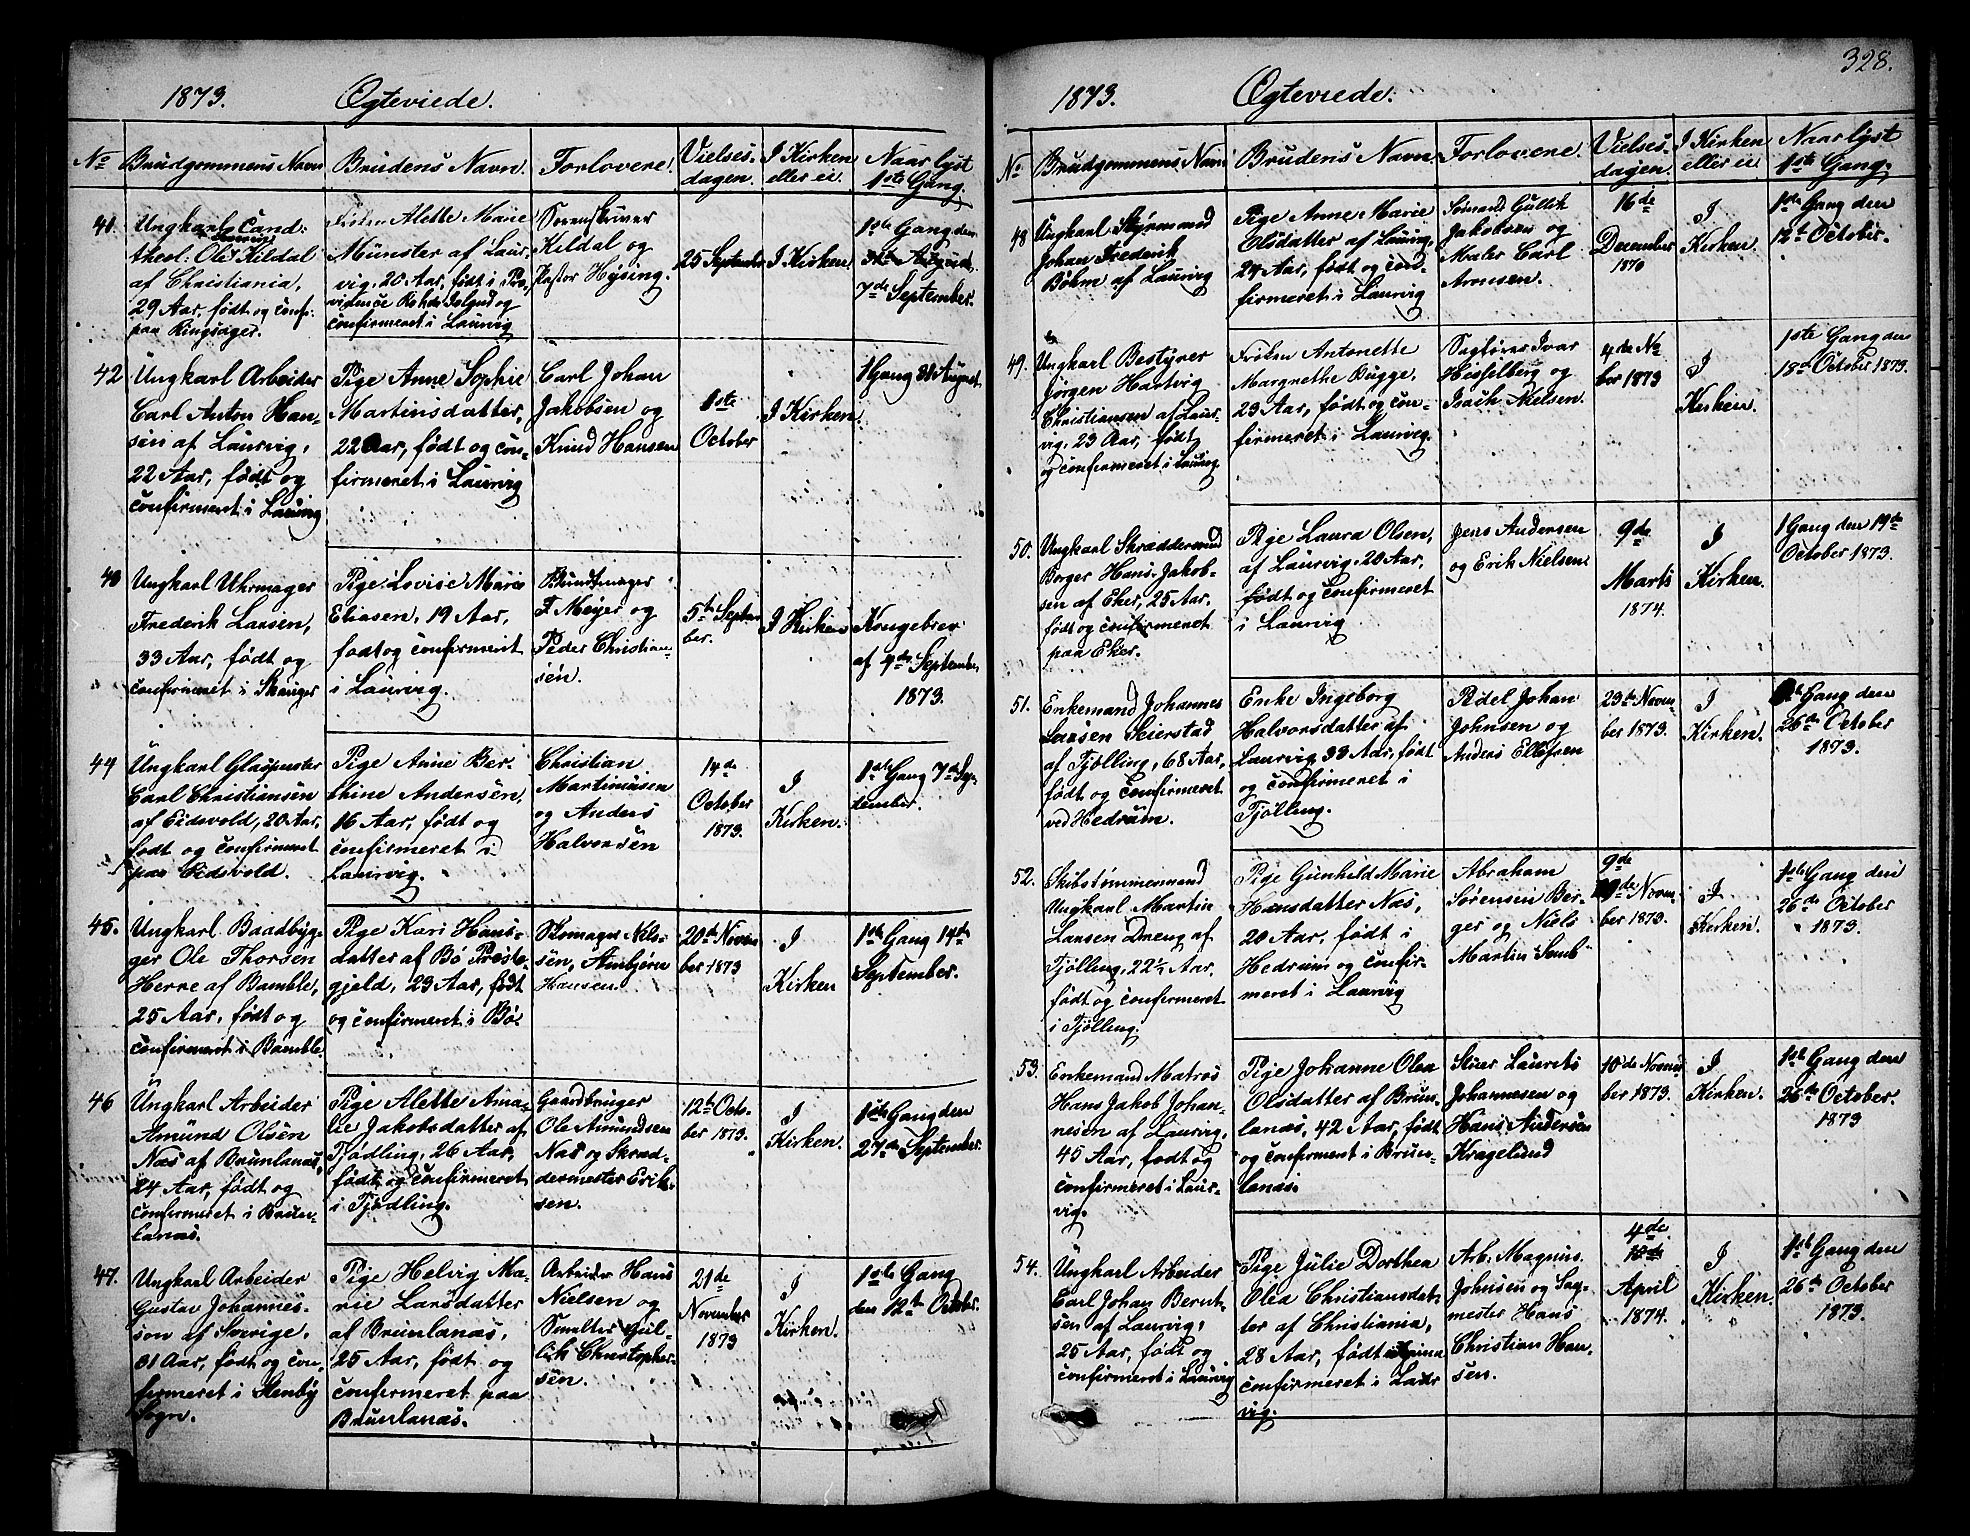 328.
1873. Ægteviede.
No Brudgommens Navn Brudens Navn. Forlovere. Vielses-dagen. I Kirken eller ei. Naar lyst 1ste Gang.
41.
Ungkarl Cand:
theol: Ole Laurig Kildal
af Christiania,
29 Aar, født og conf:
paa Ringsager.
Frøken Alette Marie
Münster af Laur-
vig, 20 Aar, født i
confirmeret i Laurvig
Sorenskriver
Kildal og
Pastor Høysing.
25 September
I Kirken
1ste Gang den
31te August,
7de September.
42
Ungkarl Arbeider
Carl Anton Han-
sen af Laurvig,
22 Aar, født og
confirmeret i Laurvig
Pige Anne Sophie
Martinsdatter,
22 Aar, født og con-
firmeret i Laurvig
Carl Johan
Jakobsen og
Knud Hansen
1ste
October
I Kirken.
1 Gang 31 August
43
Ungkarl Uhrmager
Frederik Larsen,
33 Aar, født og
confirmeret i Skauger
Pige Lovise Marie
Eliasen, 19 Aar,
født og confirmeret
i Laurvig.
Bundtmager
F. Meyer og
Peder Christian-
sen.
5te Septem
ber.
I Kirken
Kongebrev
af 4de September
1873.
44
Ungkarl Glaspuster
Carl Christiansen
af Eidsvold, 20 Aar,
født og confirmeret
paa Eidsvold.
Pige Anne Ber-
thine Andersen,
16 Aar, født og
confirmeret i
Laurvig.
Christian
Martiniusen
og Anders
Halvorsen
14de
October
1873.
I
Kirken.
1ste Gang 7de Sep-
tember.
45.
Ungkarl Baadbyg-
ger Ole Thorsen
Herre af Bamble,
25 Aar, født og
confirmeret i Bamble.
Pige Kari Hans-
datter af Bø Præste-
gjeld, 23 Aar, født
og confirmeret i Bø
Skomager Nils-
sen, Ambjørn
Hansen.
20de Novem
ber 1873
I
Kirken
1ste Gang 14de
September.
46
Ungkarl Arbeider
Amund Olsen
Næs af Brunlanæs,
24 Aar, født og
confirmeret i Brun-
lanæs.
Pige Alette Ama-
lie Jakobsdatter af
Tjødling, 26 Aar,
født og confirmeret
i Tjødling.
Gaardbruger
Ole Amundsen
Næs og Skræd-
dermester Erik-
sen.
12te Octo-
ber 1873.
I
Kirken.
1ste Gang den
21de September.
47.
Ungkarl Arbeider
Gustav Johannes-
son af Sverige,
31 Aar, født og con-
firmeret i Stenby
Sogn.
Pige Helvig Ma-
rie Larsdatter
af Brunlanæs,
25 Aar, født og
confirmeret paa
Brunlanæs.
Arbeider Hans
Nielsen og
Smelter Gul-
lik Christopher-
sen.
21de
November
1873
I
Kirken.
1ste Gang
den 12te October.
1873. Ægteviede.
No Brudgommens Navn Brudens Navn. Forlovere. Vielses-dagen. I Kirken eller ei Naar lyst 1ste Gang.
48
Ungkarl Styrmand
Johan Frederik
Bøhm af Laurvig
Pige Anne Marie
Olsdatter af Laurvig,
24 Aar, født og con-
firmeret i Laurvig
Sømand Gullik
Jakobsen og
Maler Carl
Aronsen.
16de
December
1870
I
Kirken.
1ste Gang den
12te October.
49.
Ungkarl Bestyrer
Jørgen Hartvig
Christiansen af Laur-
vig, 23 Aar, født
og confirmeret i Laurvig
Frøken Antonette
Margrethe Bugge.
23 Aar, født og con-
firmeret i Laurvig.
Sagfører Ivar
Hesselberg og
Isach Nielsen.
4de No
ber 1873
I
Kirken.
1ste Gang den
18de October 1873.
50.
Ungkarl Skræddersvend
Borger Hans Jakob-
sen af Eker, 25 Aar.
født og confirmeret
paa Eker.
Pige Laura Olsen,
af Laurvig, 20 Aar,
født og confirmeret
i Laurvig
Jens Andersen
og Erik Nielsen
9de
Marts
1874.
I
Kirken.
1 Gang den 19de
October 1873.
51.
Enkemand Johannes
Larsen Seierstad
af Tjølling, 68 Aar,
født og confirmeret
ved Hedrum.
Enke Ingeborg
Halvorsdatter af
Laurvig 33 Aar, født
og confirmeret i
Tjølling.
Pedel Johan
Johnsen og
Anders Ellefsen
23de Novem-
ber 1873.
I
Kirken.
1ste Gang den
26de October
1873.
52.
Skibstømmermand
Ungkarl Martin
Larsen Dreng af
Tjølling, 22½ Aar,
født og confirmeret
i Tjølling.
Pige Gunhild Marie
Hansdatter Næs,
20 Aar, født i
Hedrum og confir-
meret i Laurvig
Abraham
Sørensen Ber-
ger og Niels
Martin Semb
9de
Novem-
ber 1873.
I
Kirken.
1ste Gang den
26de October
1873.
53.
Enkemand Matros
Hans Jakob Johan-
nesen af Laurvig,
45 Aar, født og
confirmeret i Laur-
vig.
Pige Johanne Olea
Olsdatter af Brun-
lanæs, 42 Aar, født
og confirmeret i Brun-
lanæs.
Stuer Laurets
Johannesen og
Hans Andersen
Kragelund
10de Novem
ber 1873.
I
Kirken.
1ste Gang den
26de October.
1873
54.
Ungkarl Arbeider
Carl Johan Bernt-
sen af Laurvig,
25 Aar, født og
confirmeret i Laurvig
Pige Julie Dorthea
Olea Christiansdat-
ter af Christiania,
28 Aar, født
confirmeret i Laur
vig.
Arb. Magnus
Johnsen og Sag-
mester Hans
Christian Han-
sen.
4de
18de
April
1874.
I
Kirken.
1ste Gang den
26de October
1873.